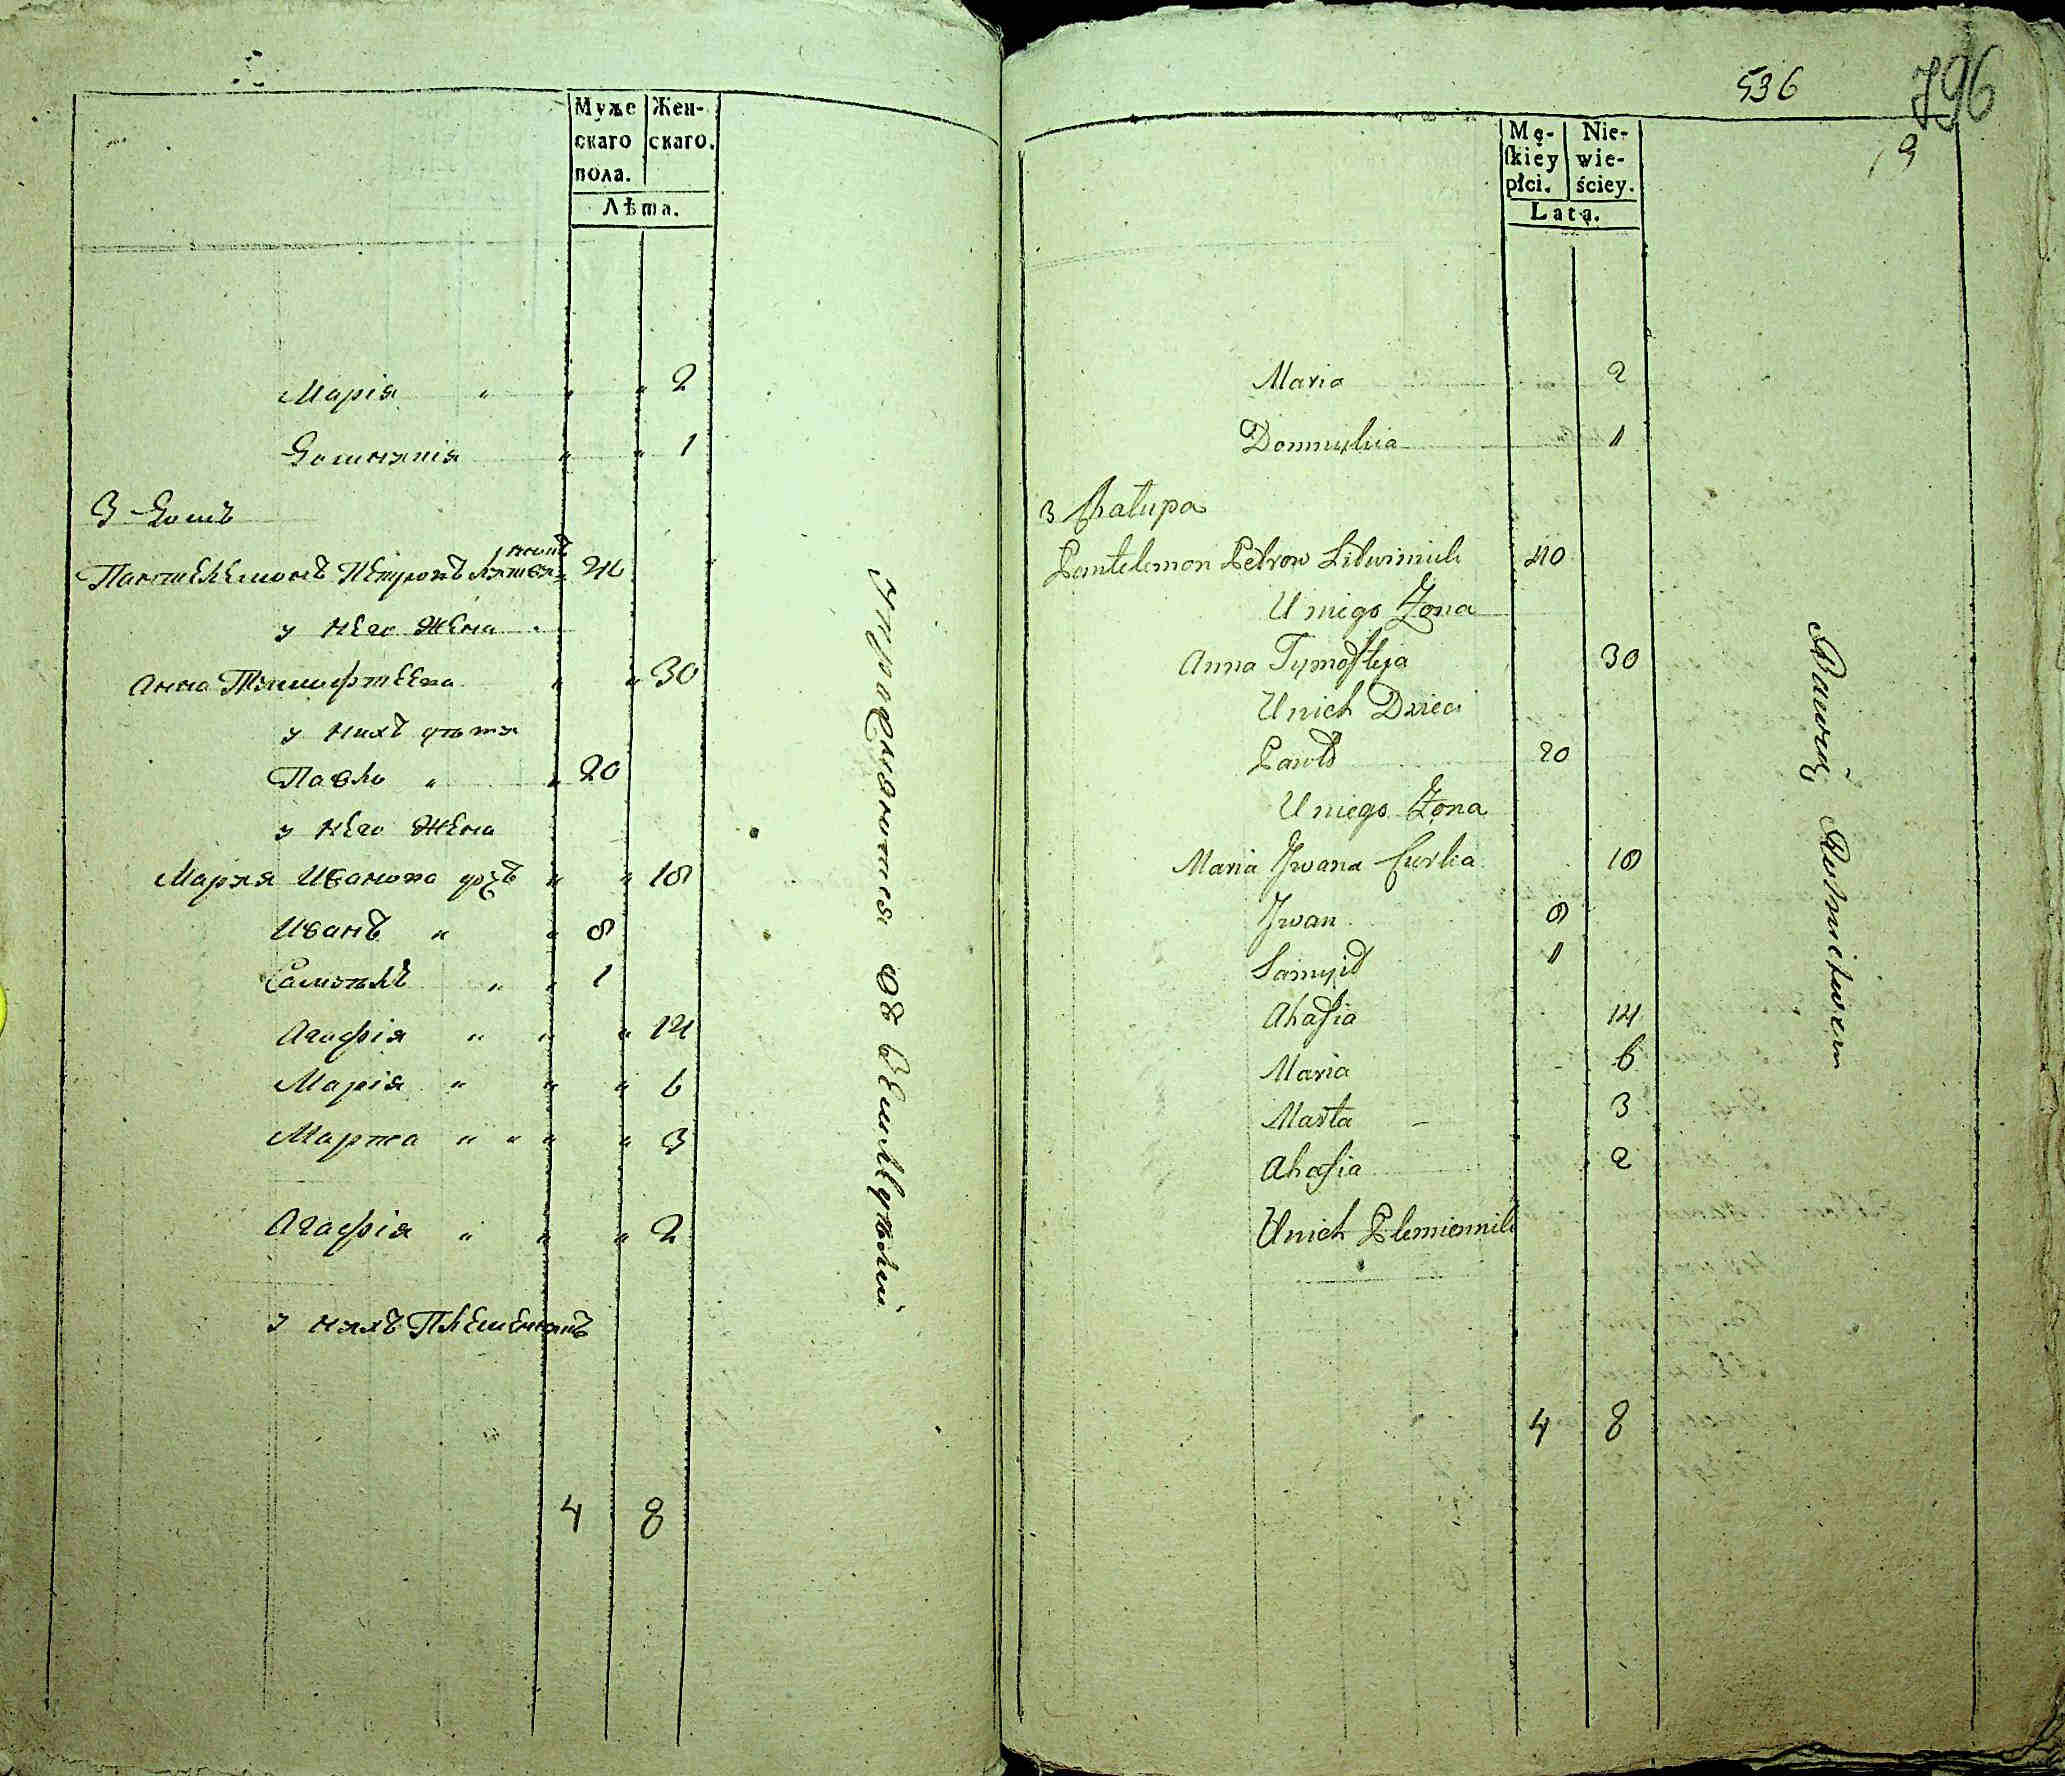 Муже
скаго
пола.
Жен-
скаго.
Лѣта.
Марія " " " 2
Домникія " " 1
3 Домъ
Пантелемонъ Петровъ Литвиникъ 40
у него жена
Анна Тимофтеева " " 30
у нихъ дѣти
Павло " " 20
у него жена
Мария Иванова дочъ " " 18
Иванъ " " 8
Самуилъ " " 1
Агафія " " " 14
Марія " " " 6
Марта " " " " 3
Агафія " " " 2
у нихъ племенникъ
4 8
упражняются въ земледѣліи
536
796
19
Mę-
ſkiey
płci.
Nie-
wie-
ściey.
Lata.
Maria 2
Domnykia 1
3 Chałupa
Pantelemon Petrow Litwiniuk 40
U niego Żona
Anna Tymofteja 30
U nich Dzieci
Pawło 20
U niego Żona
Maria Jwana Curka 18
Jwan 8
Samyił 1
Ahafia 14
Maria 6
Marta 3
Ahafia 2
U nich Plemiennik
4 8
Bawią Rolnictwem